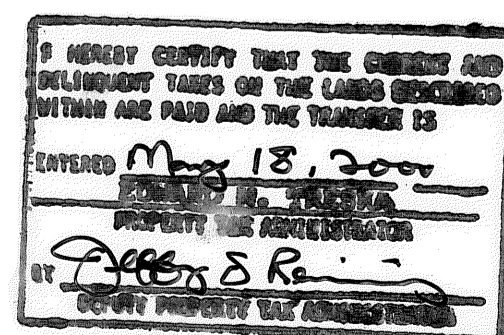 I HEREBY CERTIFY THAT THE CURRENT AND
DELINQUENT TAXES ON THE LANDS DESCRIBED
WITHIN ARE PAID AND THE TRANSFER IS
ENTERED May 18, 2000
EDWARD H. TRESKA
PROPERTY TAX ADMINISTRATOR
BY Jeffry S
DEPUTY PROPERTY TAX ADMINISTRATOR